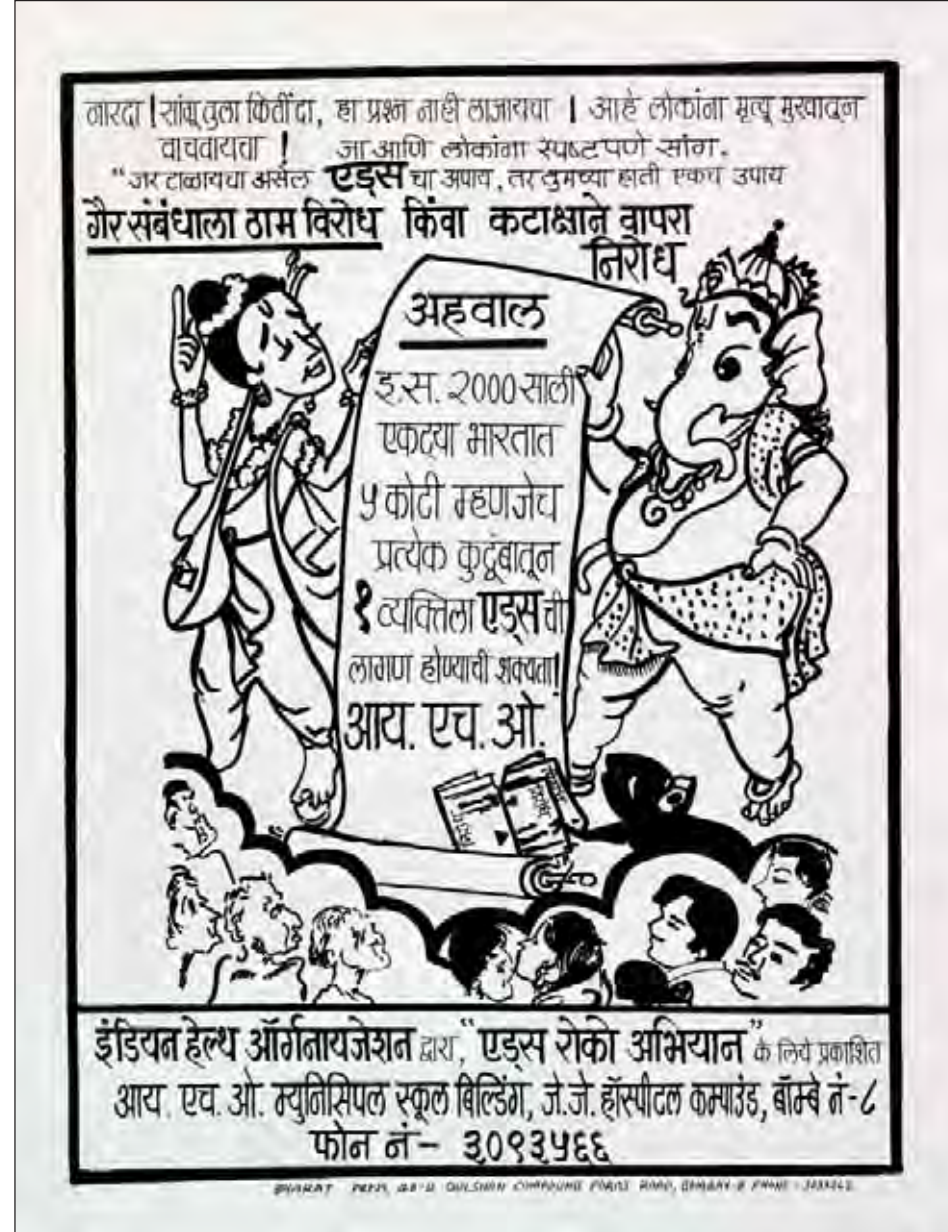 नारदा ! सांगू तुला कितींदा, हा प्रश्न नाही लाजायचा ! आहे लोकांना मृत्यू मुखातून
वाचवायचा ! जा आणि लोकांना स्पष्टपणे सांग.
"जर टाळायचा असेल एड्स चा अपाय, तर तुमच्या हाती एकच उपाय
गैर संबंधाला ठाम विरोध किंवा कटाक्षाने वापरा
निरोध
अहवाल
इ.स. २000 साली
एकट्या भारतात
५ कोटी म्हणजेच
प्रत्येक कुटूंबातून
१ व्यक्तिला एड्स ची
लागण होण्याची शक्यता!
आय. एच. ओ.
इंडियन हेल्थ ऑर्गनायजेशन द्वारा, "एड्स रोको अभियान" के लिये प्रकाशित
आय. एच. ओ. म्युनिसिपल स्कूल बिल्डिंग, जे.जे. हॉस्पीटल कम्पाउंड, बॉम्बे नं-८
फोन नं- ३०९३५६६
BHARAT GULSHAN COMPOUND ROAD, BOMBAY-8 PHONE :